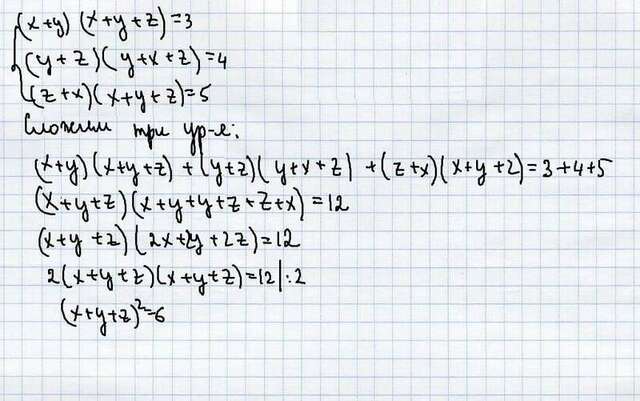 (x+y)(x+y+z)=3
(y+z)(y+x+z)=4
(z+x)(x+y+z)=5
Сложим три ур-е:
(x+y)(x+y+z)+(y+z)(y+x+z)+(z+x)(x+y+z)=3+4+5
(x+y+z)(x+y+y+z+z+x)=12
(x+y+z)(2x+2y+2z)=12
2(x+y+z)(x+y+z)=12|:2
(x+y+z)²=6